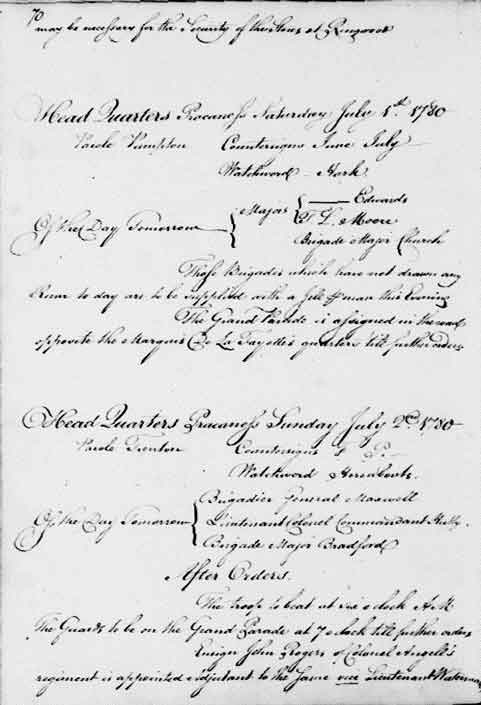 70
may be necessary for the Security of the Stores at Ringwood
Head Quarters Precaness Saturday July 1st 1780
Parole Pumpton Countersigns June July
Watchword Hark
Of the Day Tomorrow Majors Edwards
T. L. Moore
Brigade Major Church
Those Brigades which have not drawn any
Rum to day are to be supplied with a Jill pr man this Evening
The Grand Parade is assigned in the road
opposite the Marquis De La Fayette's quarters till further orders
Head Quarters Precaness Sunday July 2nd 1780
Parole Trenton Countersigns P.
Watchword
Brigadier General Maxwell
Of the Day Tomorrow Lieutenant Colonel Commandant
Brigade Major Bradford
After Orders.
The troop to beat at six o'clock A.M
The Guards to be on the Grand Parade at 7 o'clock till further orders
Ensign John Rogers of Colonel Angell's
regiment is appointed Adjutant to the same vice Lieutenant Waterman